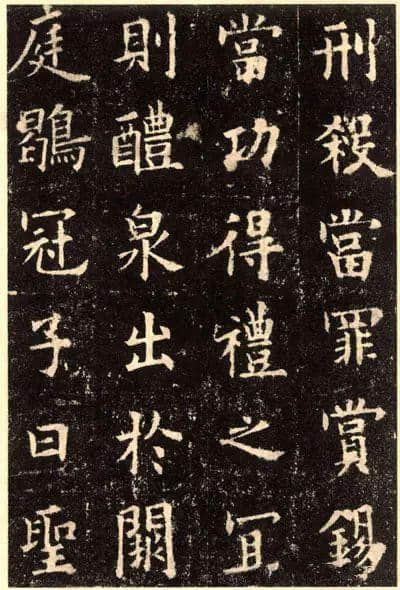 刑殺當罪賞錫
當功得禮之宜
則醴泉出於闕
庭鶡冠子曰聖